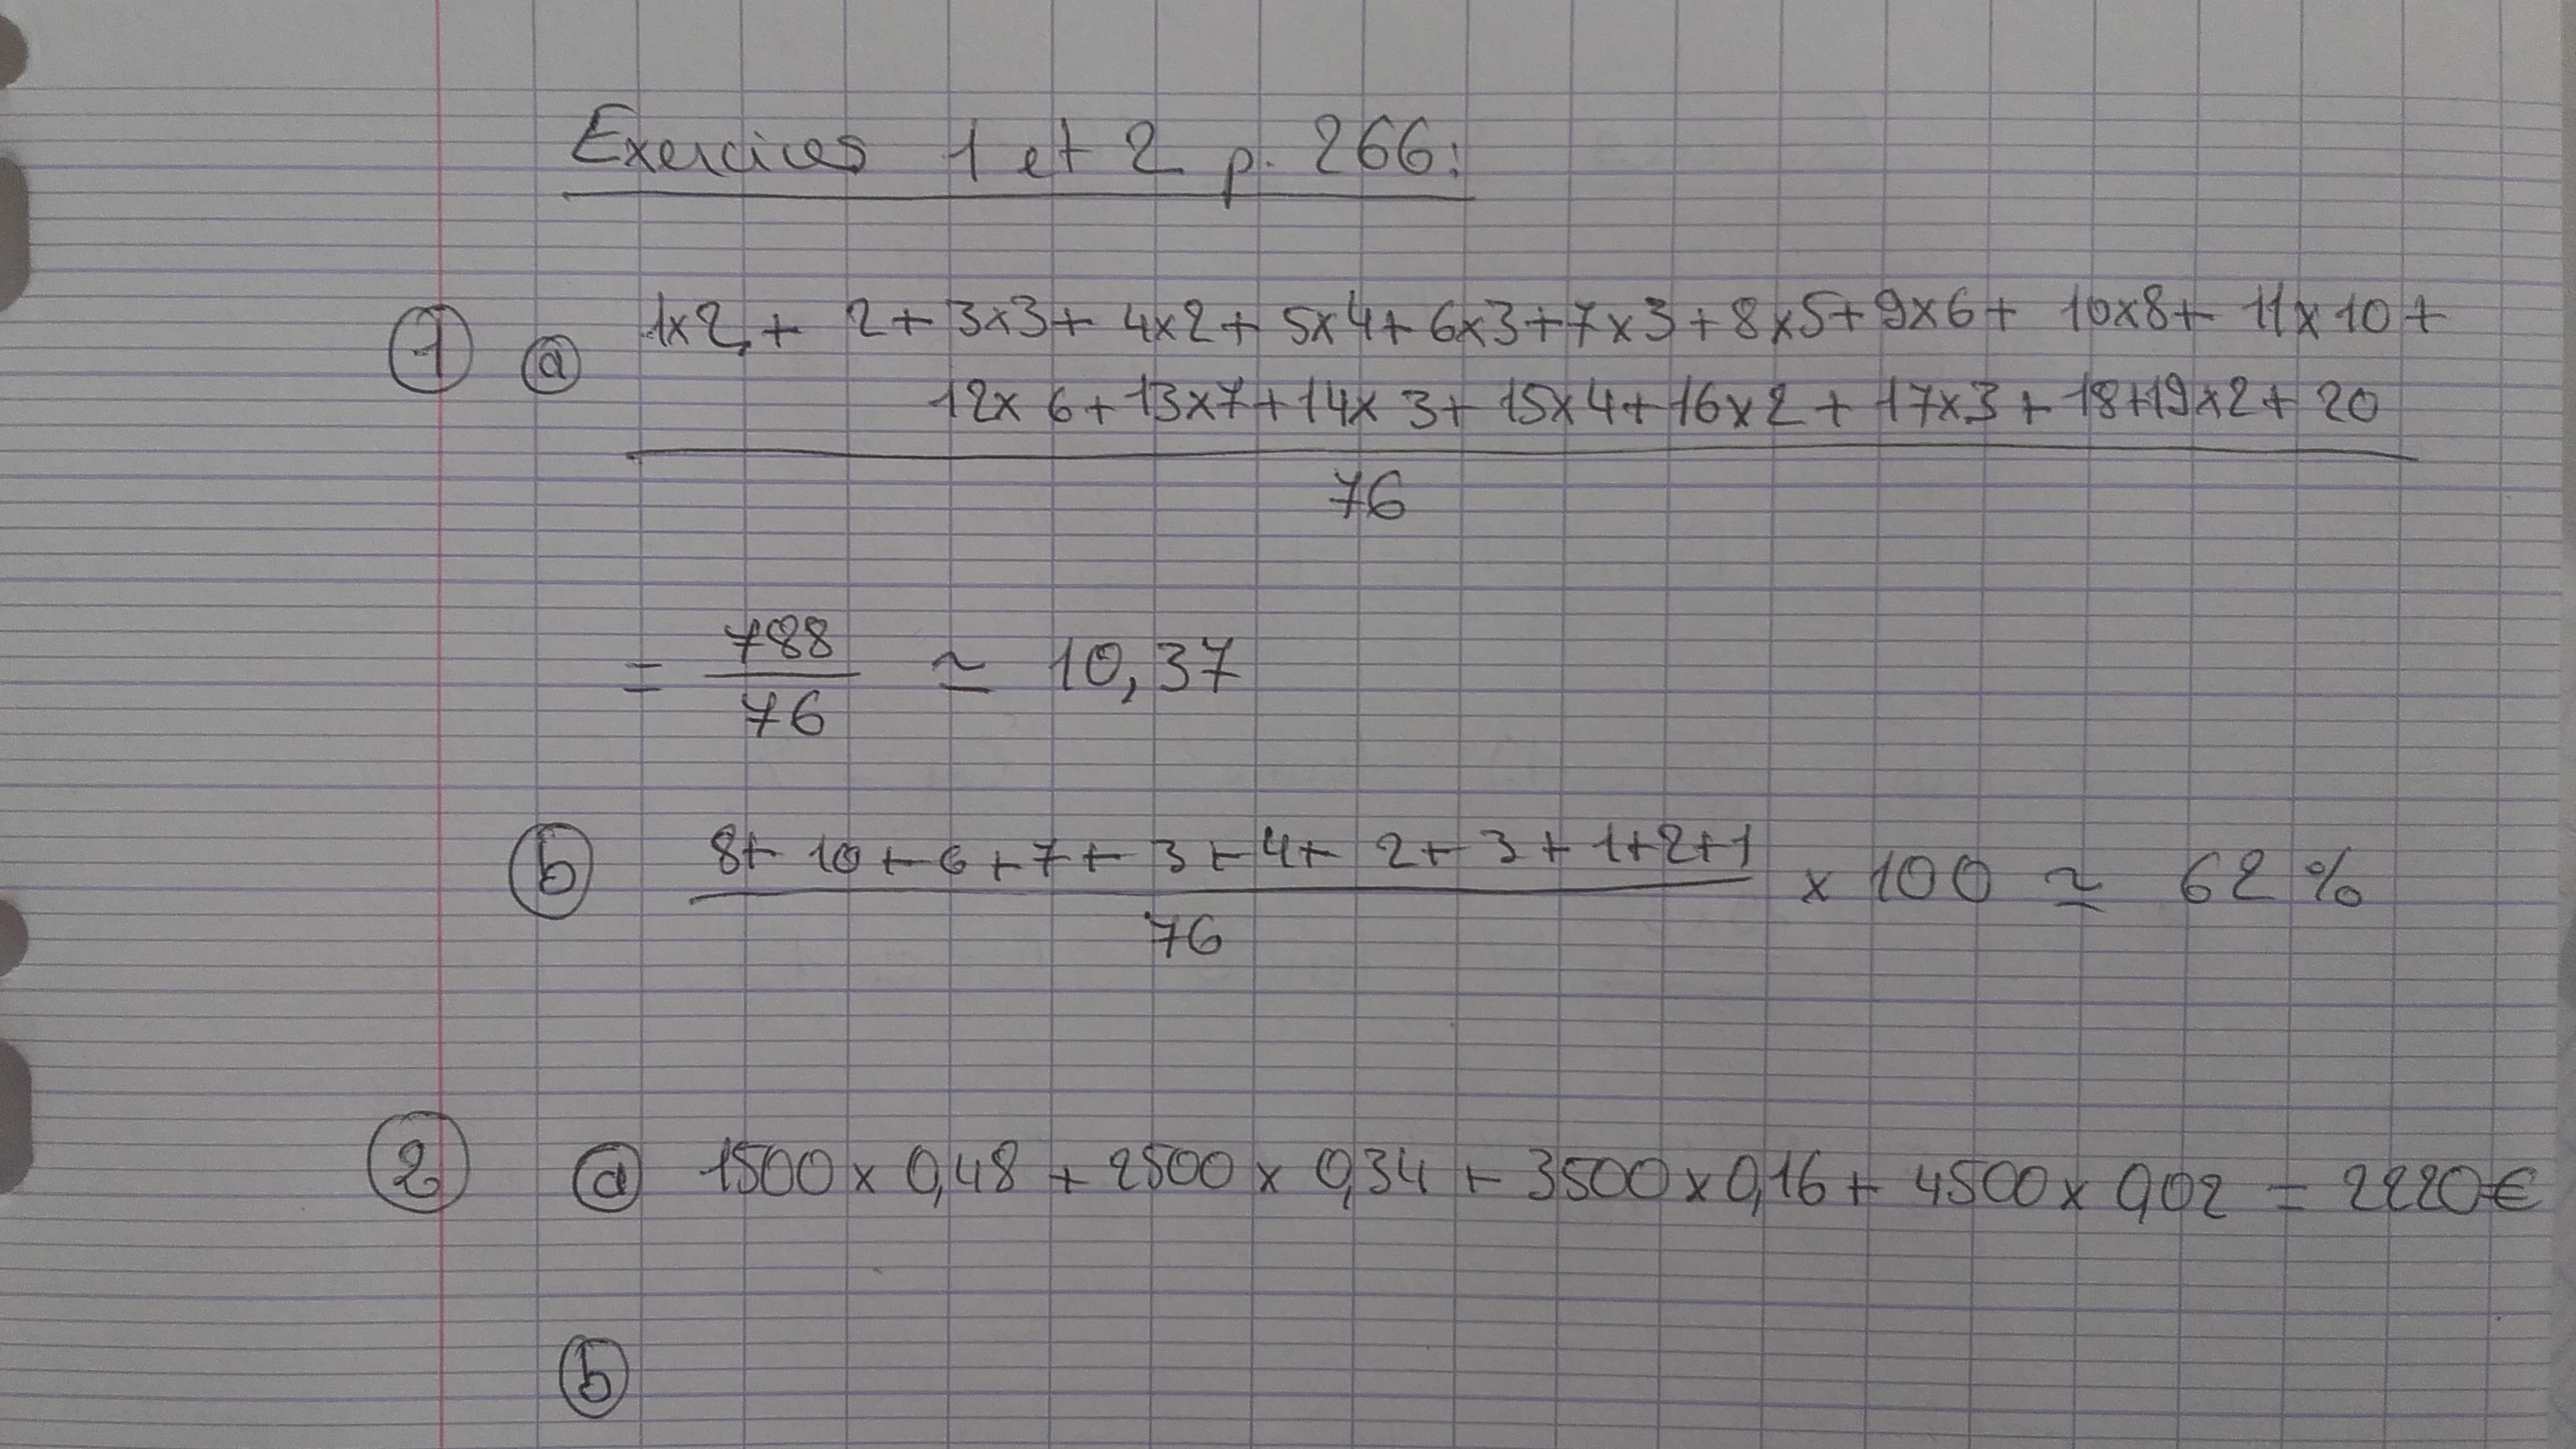 Exercices 1 et 2 p. 266:
① ⓐ 1x2 + 2 + 3x3 + 4x2 + 5x4 + 6x3 + 7x3 + 8x5 + 9x6 + 10x8 + 11x10 +
12x6 + 13x7 + 14x3 + 15x4 + 16x2 + 17x3 + 18 + 19x2 + 20
76
= 788/76 ≃ 10,37
ⓑ 8 + 10 + 6 + 7 + 3 + 4 + 2 + 3 + 1 + 2 + 1
76
x 100 ≃ 62 %
② ⓐ 1500 x 0,48 + 2500 x 0,34 + 3500 x 0,16 + 4500 x 0,02 = 2220€
ⓑ